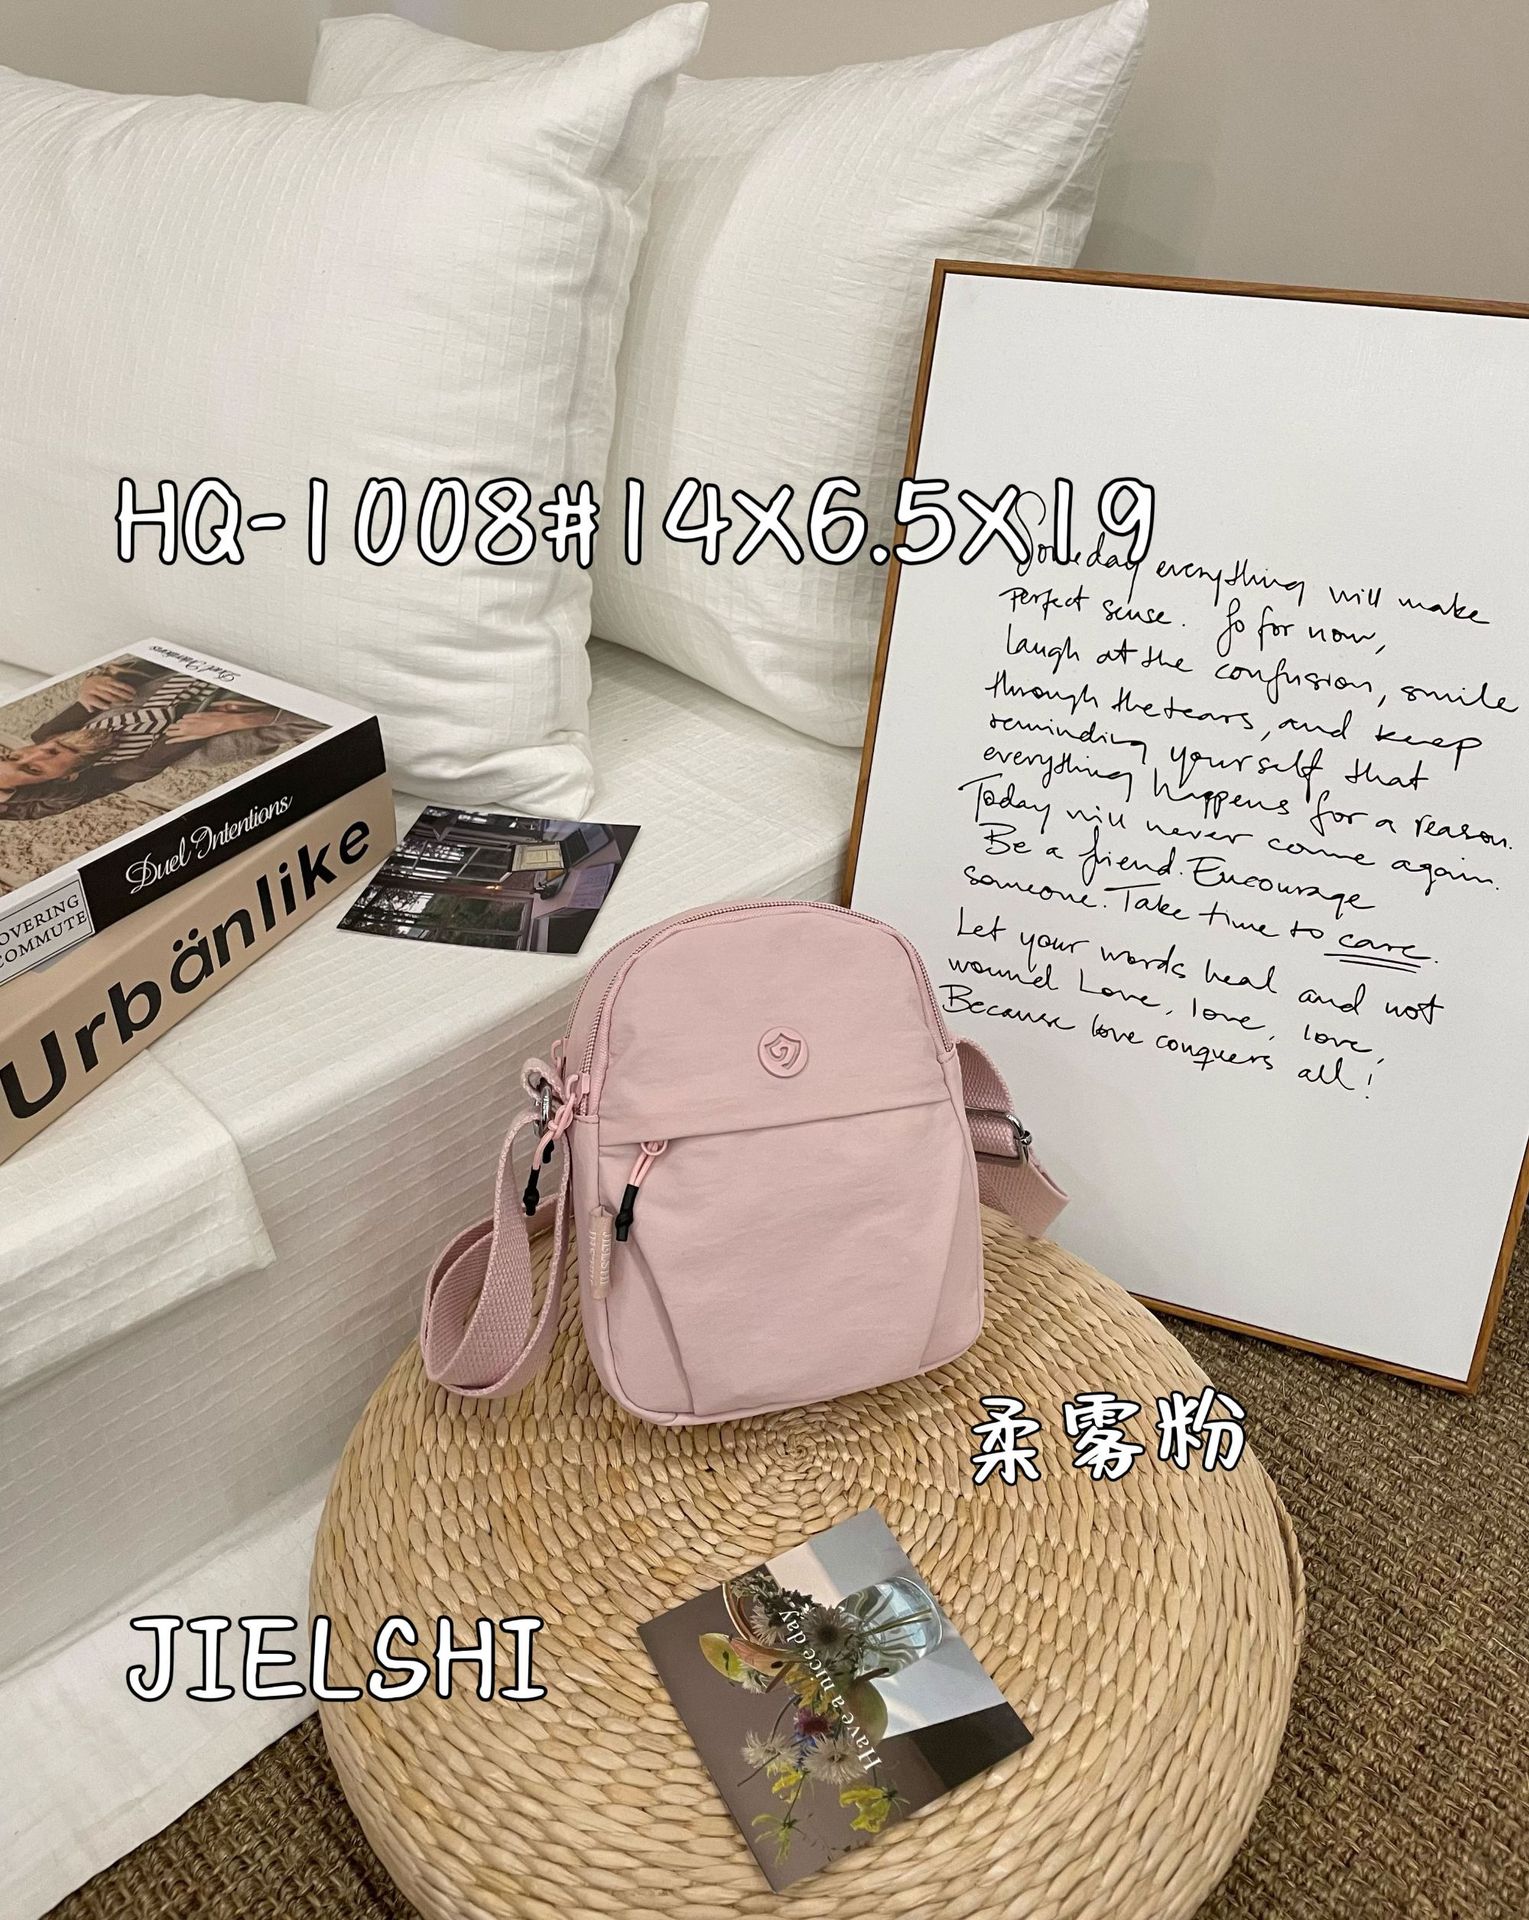 HQ-1008#14X6.5X19
Someday everything will make
perfect sense. So for now,
laugh at the confusion, smile
through the tears, and keep
reminding yourself that
everything happens for a reason.
Today will never come again.
Be a friend. Encourage
someone. Take time to care.
Let your words heal and not
wound Love, love, love,
Because love conquers all!
Duel Intentions
Duel Intentions
OVERING
COMMUTE
Urbänlike
JIELSHI
柔雾粉
JIELSHI
Have a nice day